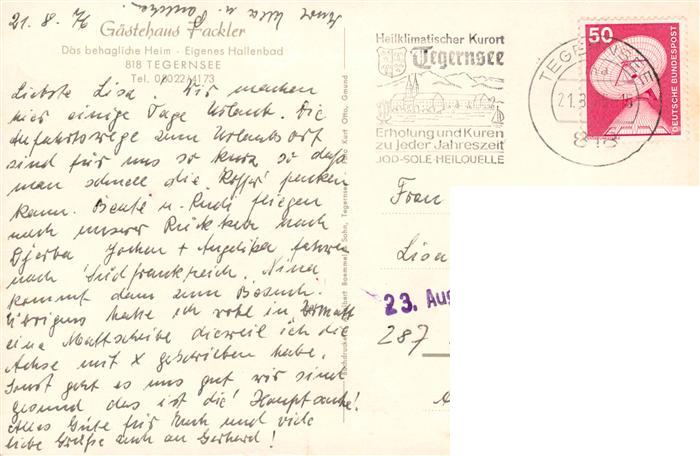 21. 8. 76
Gästehaus Fackler
Das behagliche Heim - Eigenes Hallenbad
818 TEGERNSEE
Tel. 08022/4173
Liebste Lisa. Wir machen
hier einige Tage Urlaub. Die
Anfahrtswege zum Urlaubsort
sind für uns so kurz, so daß
man schnell die Koffer packen
kann. Beate u. Rudi fliegen
nach unserer Rückkehr nach
Djerba Jochen + Angelika fahren
nach Südfrankreich. Nina
kommt dann zum Besuch.
Übrigens hatte ich wohl in
eine Mattscheibe dieweil ich die
Achse mit X geschrieben habe.
Sonst geht es uns gut wir sind
gesund das ist die Hauptsache!
Alles Gute für Euch und viele
liebe Grüße auch an Gerhard!
Eure u.
Heilklimatischer Kurort
Tegernsee
Erholung und Kuren
zu jeder Jahreszeit
JOD-SOLE-HEILQUELLE
TEGERNSEE
21.8.
818
50
DEUTSCHE BUNDESPOST
Frau
Lisa
23. Aug
287
Tegernsee - Foto Kurt Otto, Gmund